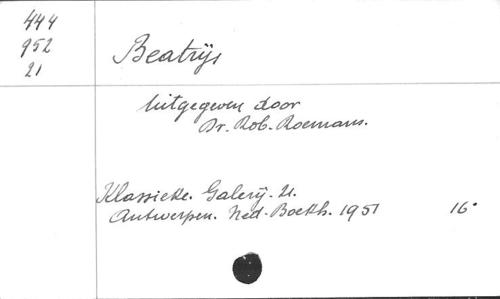 444
952
21
Beatrijs
Uitgegeven door
Dr. Rob. Roemans.
Klassieke. Galerij. 21.
Antwerpen. Ned. Boekh. 1951 16°